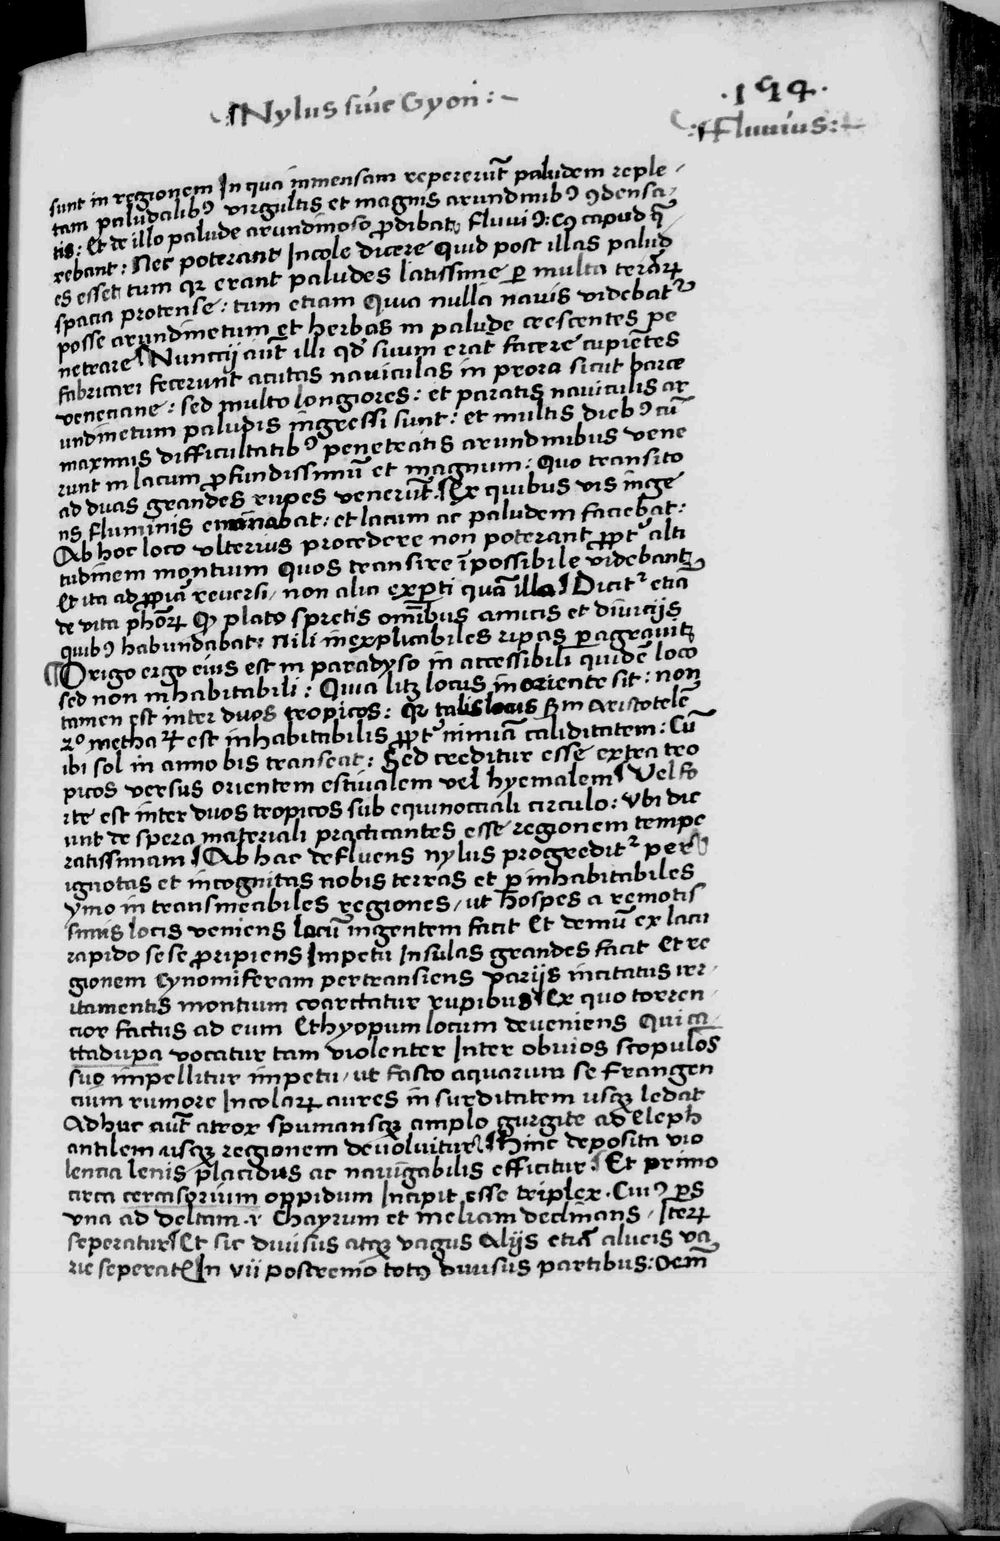 Nylus siue Gyon :~
·154·
Fluuius :~
sunt in regionem In qua inmensam repererūt paludem reple
tam paludalibꝰ virgultis et magnis arundinibꝰ ꝯdensa
tis : Et de illo palude arundinoso ꝓdibat fluuiꝰ : cꝰ capud q̄
rebant : Nec poterant Incole dicere Quid post illas palud
es esset tum qꝛ erant paludes latissime ꝑ multa terraꝝ
spacia protense : tum etiam Quia nulla nauis videbatᷣ
posse arundinetum et herbas in palude crescentes pe
netrare Nunccij aūt illi qd̕ suum erat facere cupiētes
fabricari fecerunt acutas nauiculas in prora sicut barce
veneciane : sed multo longiores : et paratis nauiculis ar
undinetum paludis ingressi sunt : et multis diebꝰ cū
maximis difficultatibꝰ penetratis arundinibus vene
runt in lacum ꝓfundissimū et magnum : Quo transito
ad duas grandes rupes venerūt. Ex quibus vis inge
ns fluminis emanabat : et lacum ac paludem faciebat :
Ab hoc loco vlterius procedere non poterant ꝓpt᷑ alti
tudinem montium Quos transire īpossibile videbantᷣ
Et ita ad ꝓpia reuersi / non alia exꝑti quā illa Dicitᷣ etiā
de vita ph̄oꝝ Qꝫ plato spretis omībus amicis et diuicijs
quibꝰ habundabat : Nili inexplicabiles ripas ꝑagrauit
Origo ergo eius est in paradyso in accessibili quidē loco
sed non inhabitabili : Quia litꝫ locus in oriente sit : non
tamen est inter duos tropicos : qꝛ talis locus ẜm Aristotelē
2º metha ꝝ est inhabitabilis ꝓpt᷑ nimiā caliditatem : Cū
ibi sol in anno bis transeat : Sed creditur esse extra tro
picos versus orientem estiualem vel hyemalem Vel fo
rte est inter duos tropicos sub equinocciali circulo : vbi dic
unt de spera materiali practicantes esse regionem tempe
ratissimam Ab hac defluens nylus progreditᷣ per
ignotas et incognitas nobis terras et ꝑ inhabitabiles
ymo in transmeabiles regiones / ut hospes a remotis
simis locis veniens Locū ingentem facit Et demū ex lacu
rapido sese ꝓripiens Impetu Insulas grandes facit Et re
gionem Cynomiferam pertransiens varijs incitatus irr
itamentis montium coarctatur rupibus Ex quo torren
cior factus ad eum Ethyopum locum deueniens Qui ca
ttadupa vocatur tam violenter Inter obuios scopulos
suo impellitur impetu / ut fasco aquarum se frangen
cium rumore Incolaꝝ aures in surditatem usqꝫ ledat
Adhuc aūt atrox spumansqꝫ amplo gurgite ad Eleph
antilem usqꝫ regionem deuoluitur Hinc deposita vio
lencia lenis placidus ac nauigabilis efficitur Et primo
circa cercasorium oppidum Incipit esse triplex. Cuiꝰ ꝑs
vna ad deltam. r Chayrum et meliam declinans / Iteꝝ
seperatur Et sic diuisus atqꝫ vagus Alijs etiā alueis va
rie seperatᷣ In vii postremo totꝰ diuisus partibus : oem̄